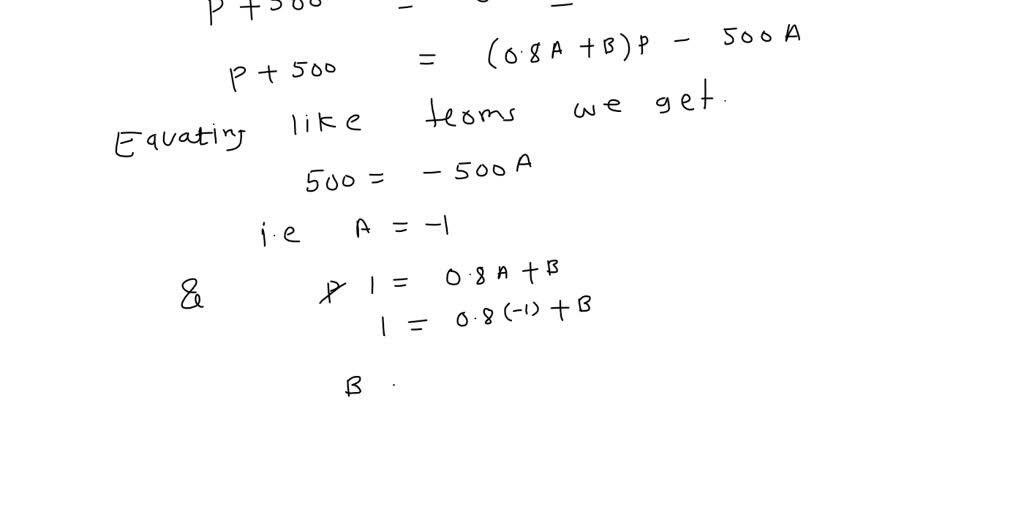 P + 500 =
P + 500 = (0.8A + B)P - 500A
Equating like teoms we get.
500 = - 500A
i.e A = -1
& 1 = 0.8A + B
1 = 0.8(-1) + B
B